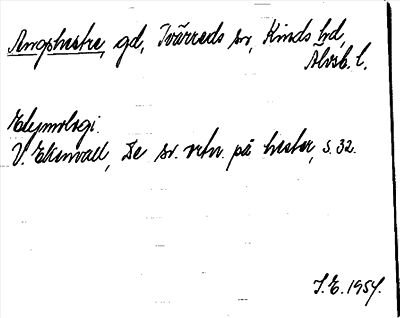 Angshestre, gd, Tvärreds sn, Kinds hd,
Älvsb. l.
Etymologi.
V. Ekenvall, De sv. ortn. på hester, s. 32.
I.E. 1954.